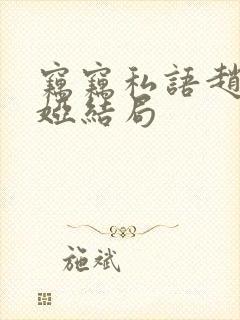 竊竊私語趙
婭結局
施斌